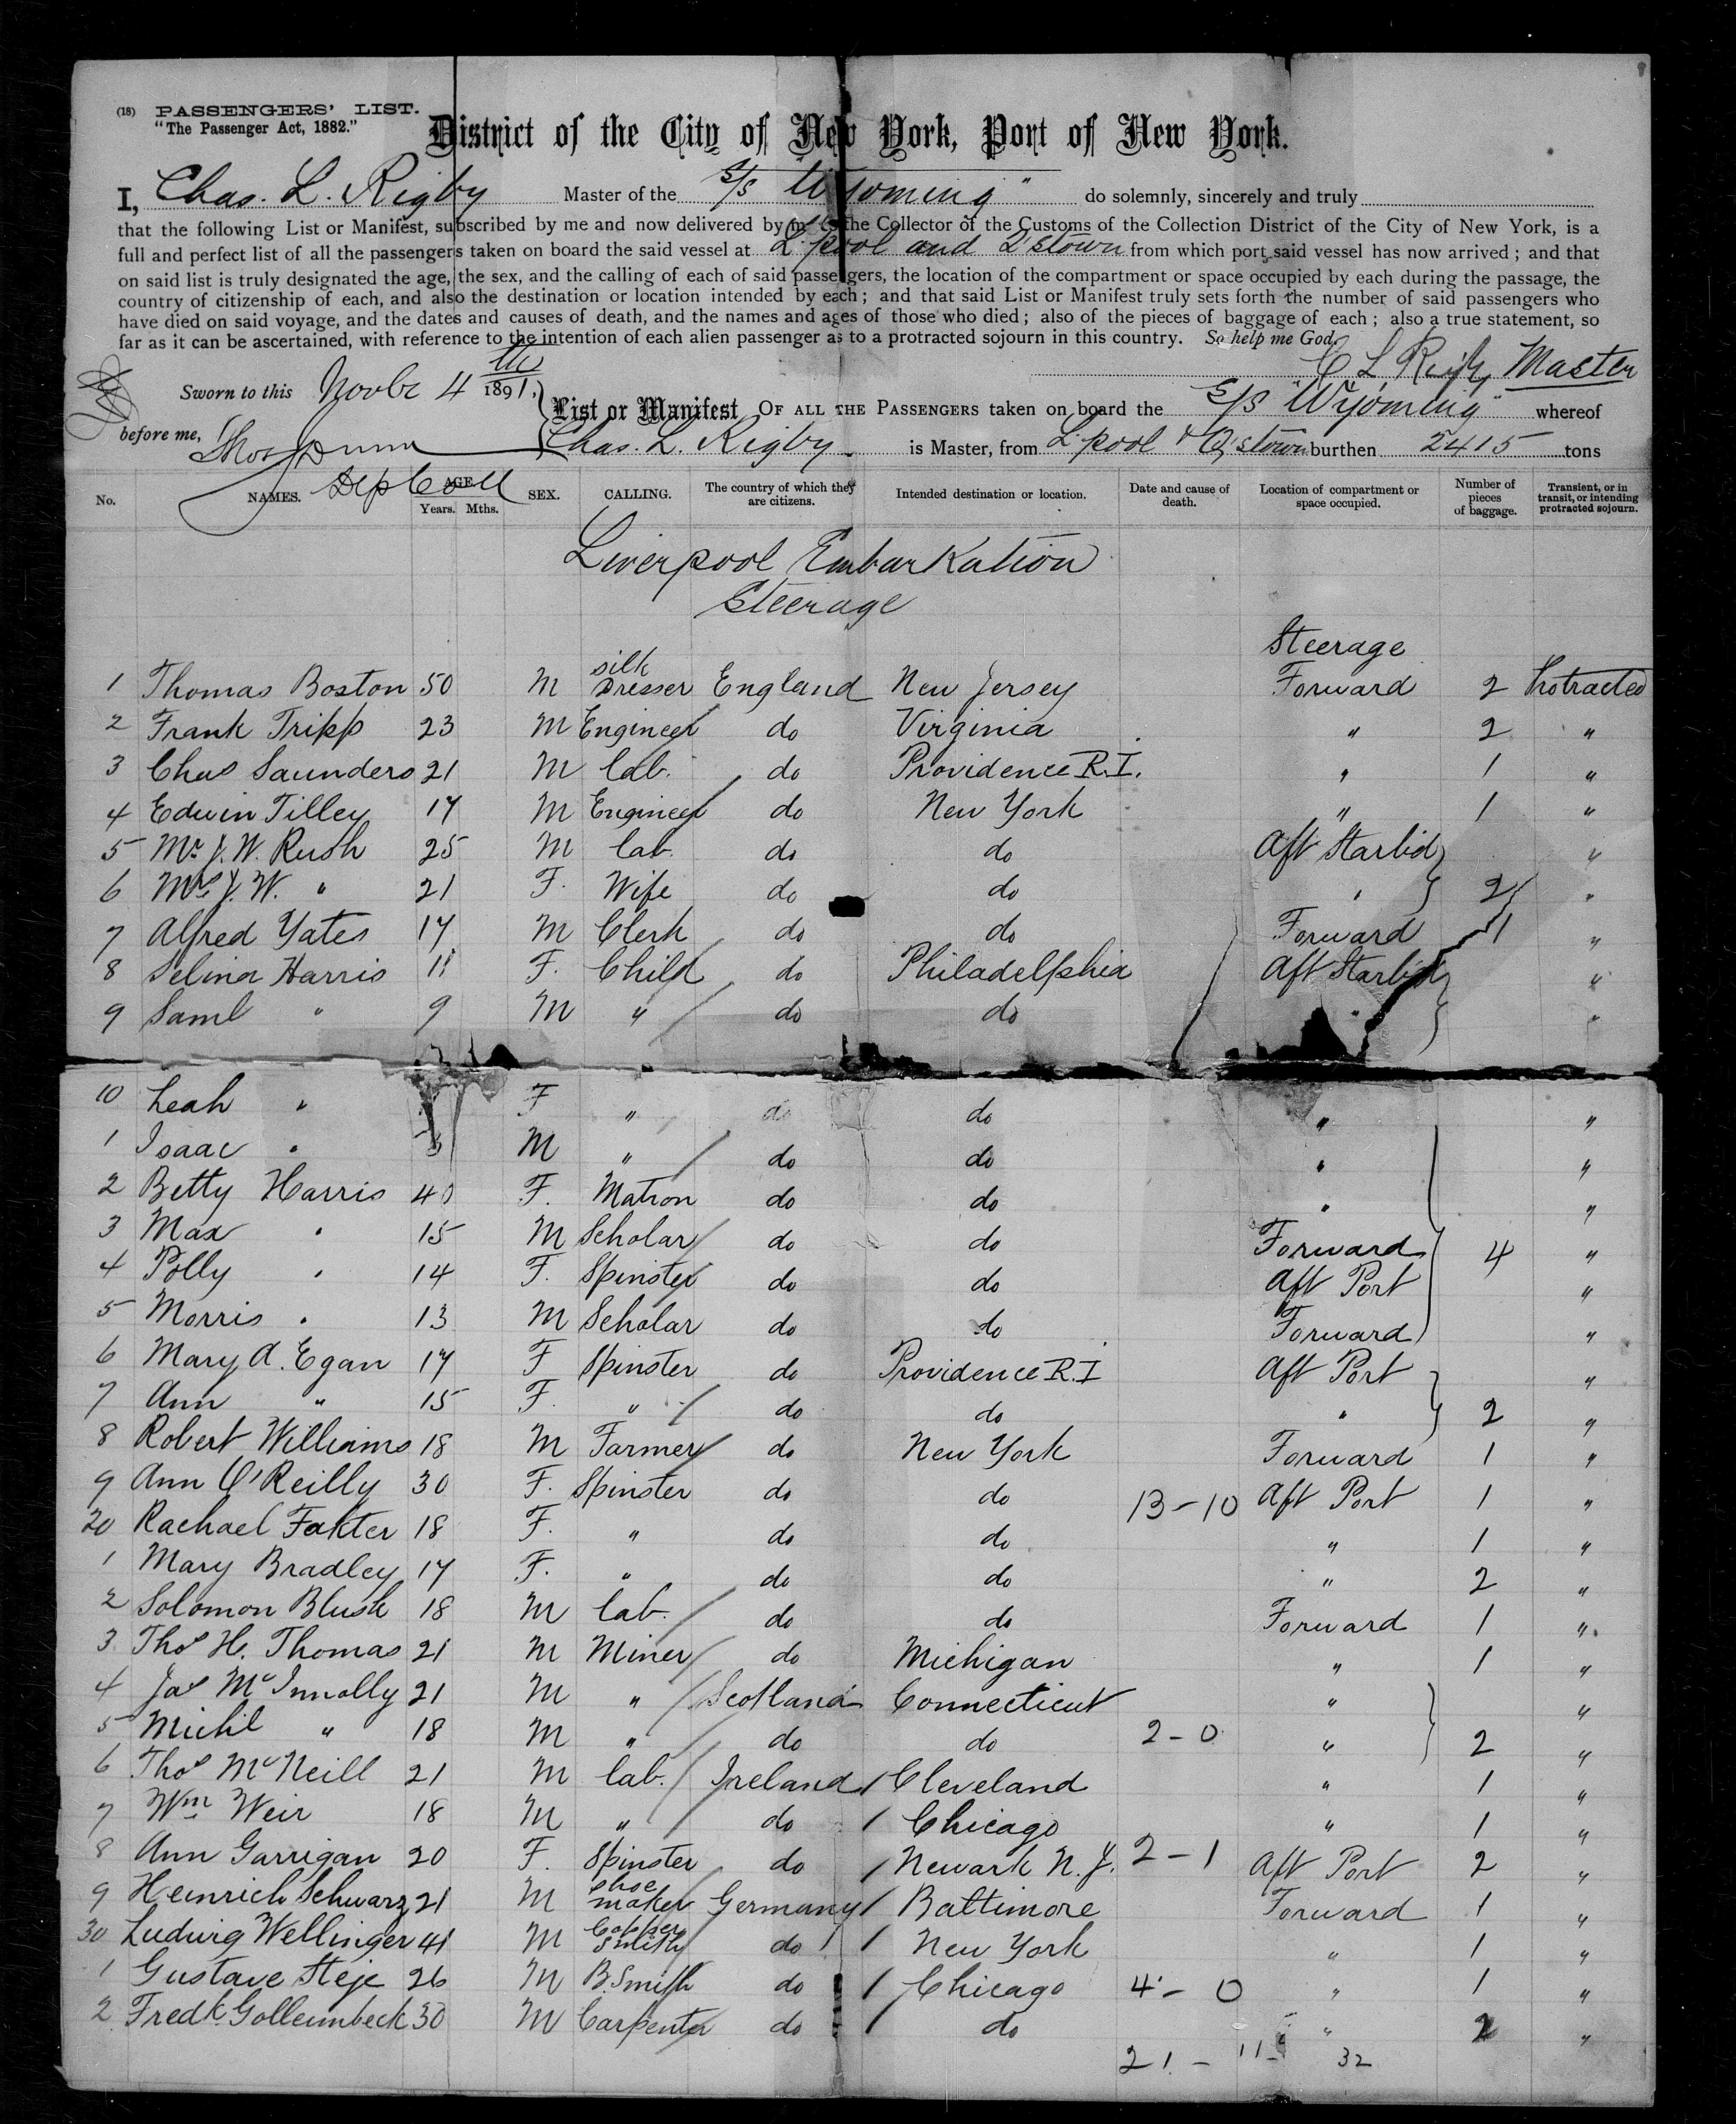 (18) PASSENGERS' LIST.
"The Passenger Act, 1882."
District of the City of New York, Port of New York.
I, Chas. L. Rigby Master of the S/S "Wyoming" do solemnly, sincerely and truly
that the following List or Manifest, subscribed by me and now delivered by me to the Collector of the Customs of the Collection District of the City of New York, is a
full and perfect list of all the passengers taken on board the said vessel at L'pool and Q'stown from which port said vessel has now arrived ; and that
on said list is truly designated the age, the sex, and the calling of each of said passengers, the location of the compartment or space occupied by each during the passage, the
country of citizenship of each, and also the destination or location intended by each ; and that said List or Manifest truly sets forth the number of said passengers who
have died on said voyage, and the dates and causes of death, and the names and ages of those who died ; also of the pieces of baggage of each ; also a true statement, so
far as it can be ascertained, with reference to the intention of each alien passenger as to a protracted sojourn in this country. So help me God.
C L Rigby Master
Sworn to this Novbr 4th 1891.
List or Manifest OF ALL THE PASSENGERS taken on board the S/S "Wyoming" whereof
before me, Thos Dunn
Chas. L. Rigby is Master, from L'pool & Q'stown burthen 2415 tons
Dep Coll
No. NAMES. AGE Years. Mths. SEX. CALLING. The country of which they are citizens. Intended destination or location. Date and cause of death. Location of compartment or space occupied. Number of pieces of baggage. Transient, or in transit, or intending protracted sojourn.
Liverpool Embarkation
Steerage
Steerage
1 Thomas Boston 50 M silk Dresser England New Jersey Forward 2 Protracted
2 Frank Tripp 23 M Engineer do Virginia " 2 "
3 Chas Saunders 21 M Lab. do Providence R.I. " 1 "
4 Edwin Tilley 17 M Engineer do New York " 1 "
5 Mr J. W. Rush 25 M lab. do do Aft Starbd "
6 Mrs J. W. " 21 F. Wife do do " 2 "
7 Alfred Yates 17 M Clerk do do Forward 1 "
8 Selina Harris 11 F. Child do Philadelphia Aft Starbd "
9 Saml " 9 M " do do " "
10 Leah " F " do do " "
1 Isaac " M " do do " "
2 Betty Harris 40 F. Matron do do " "
3 Max " 15 M Scholar do do Forward 4 "
4 Polly " 14 F. Spinster do do Aft Port "
5 Morris " 13 M Scholar do do Forward "
6 Mary A. Egan 17 F Spinster do Providence R.I Aft Port "
7 Ann " 15 F. " do do " 2 "
8 Robert Williams 18 M Farmer do New York Forward 1 "
9 Ann O'Reilly 30 F. Spinster do do 13 - 10 Aft Port 1 "
20 Rachael Fakter 18 F. " do do " 1 "
1 Mary Bradley 17 F. " do do " 2 "
2 Solomon Blush 18 M lab. do do Forward 1 "
3 Thos H. Thomas 21 M Miner do Michigan " 1 "
4 Jas McInnolly 21 M " Scotland Connecticut " "
5 Michl " 18 M " do do 2 - 0 " 2 "
6 Thos McNeill 21 M lab. Ireland Cleveland " 1 "
7 Wm Weir 18 M " do Chicago " 1 "
8 Ann Garrigan 20 F. Spinster do Newark N. J. 2 - 1 Aft Port 2 "
9 Heinrich Schwarz 21 M shoe maker Germany Baltimore Forward 1 "
30 Ludwig Wellinger 41 M Copper Smith do New York " 1 "
1 Gustave Steje 26 M B. Smith do Chicago 4 - 0 " 1 "
2 Fredk Gollembeck 30 M Carpenter do do " 2 "
21 - 11 - 32